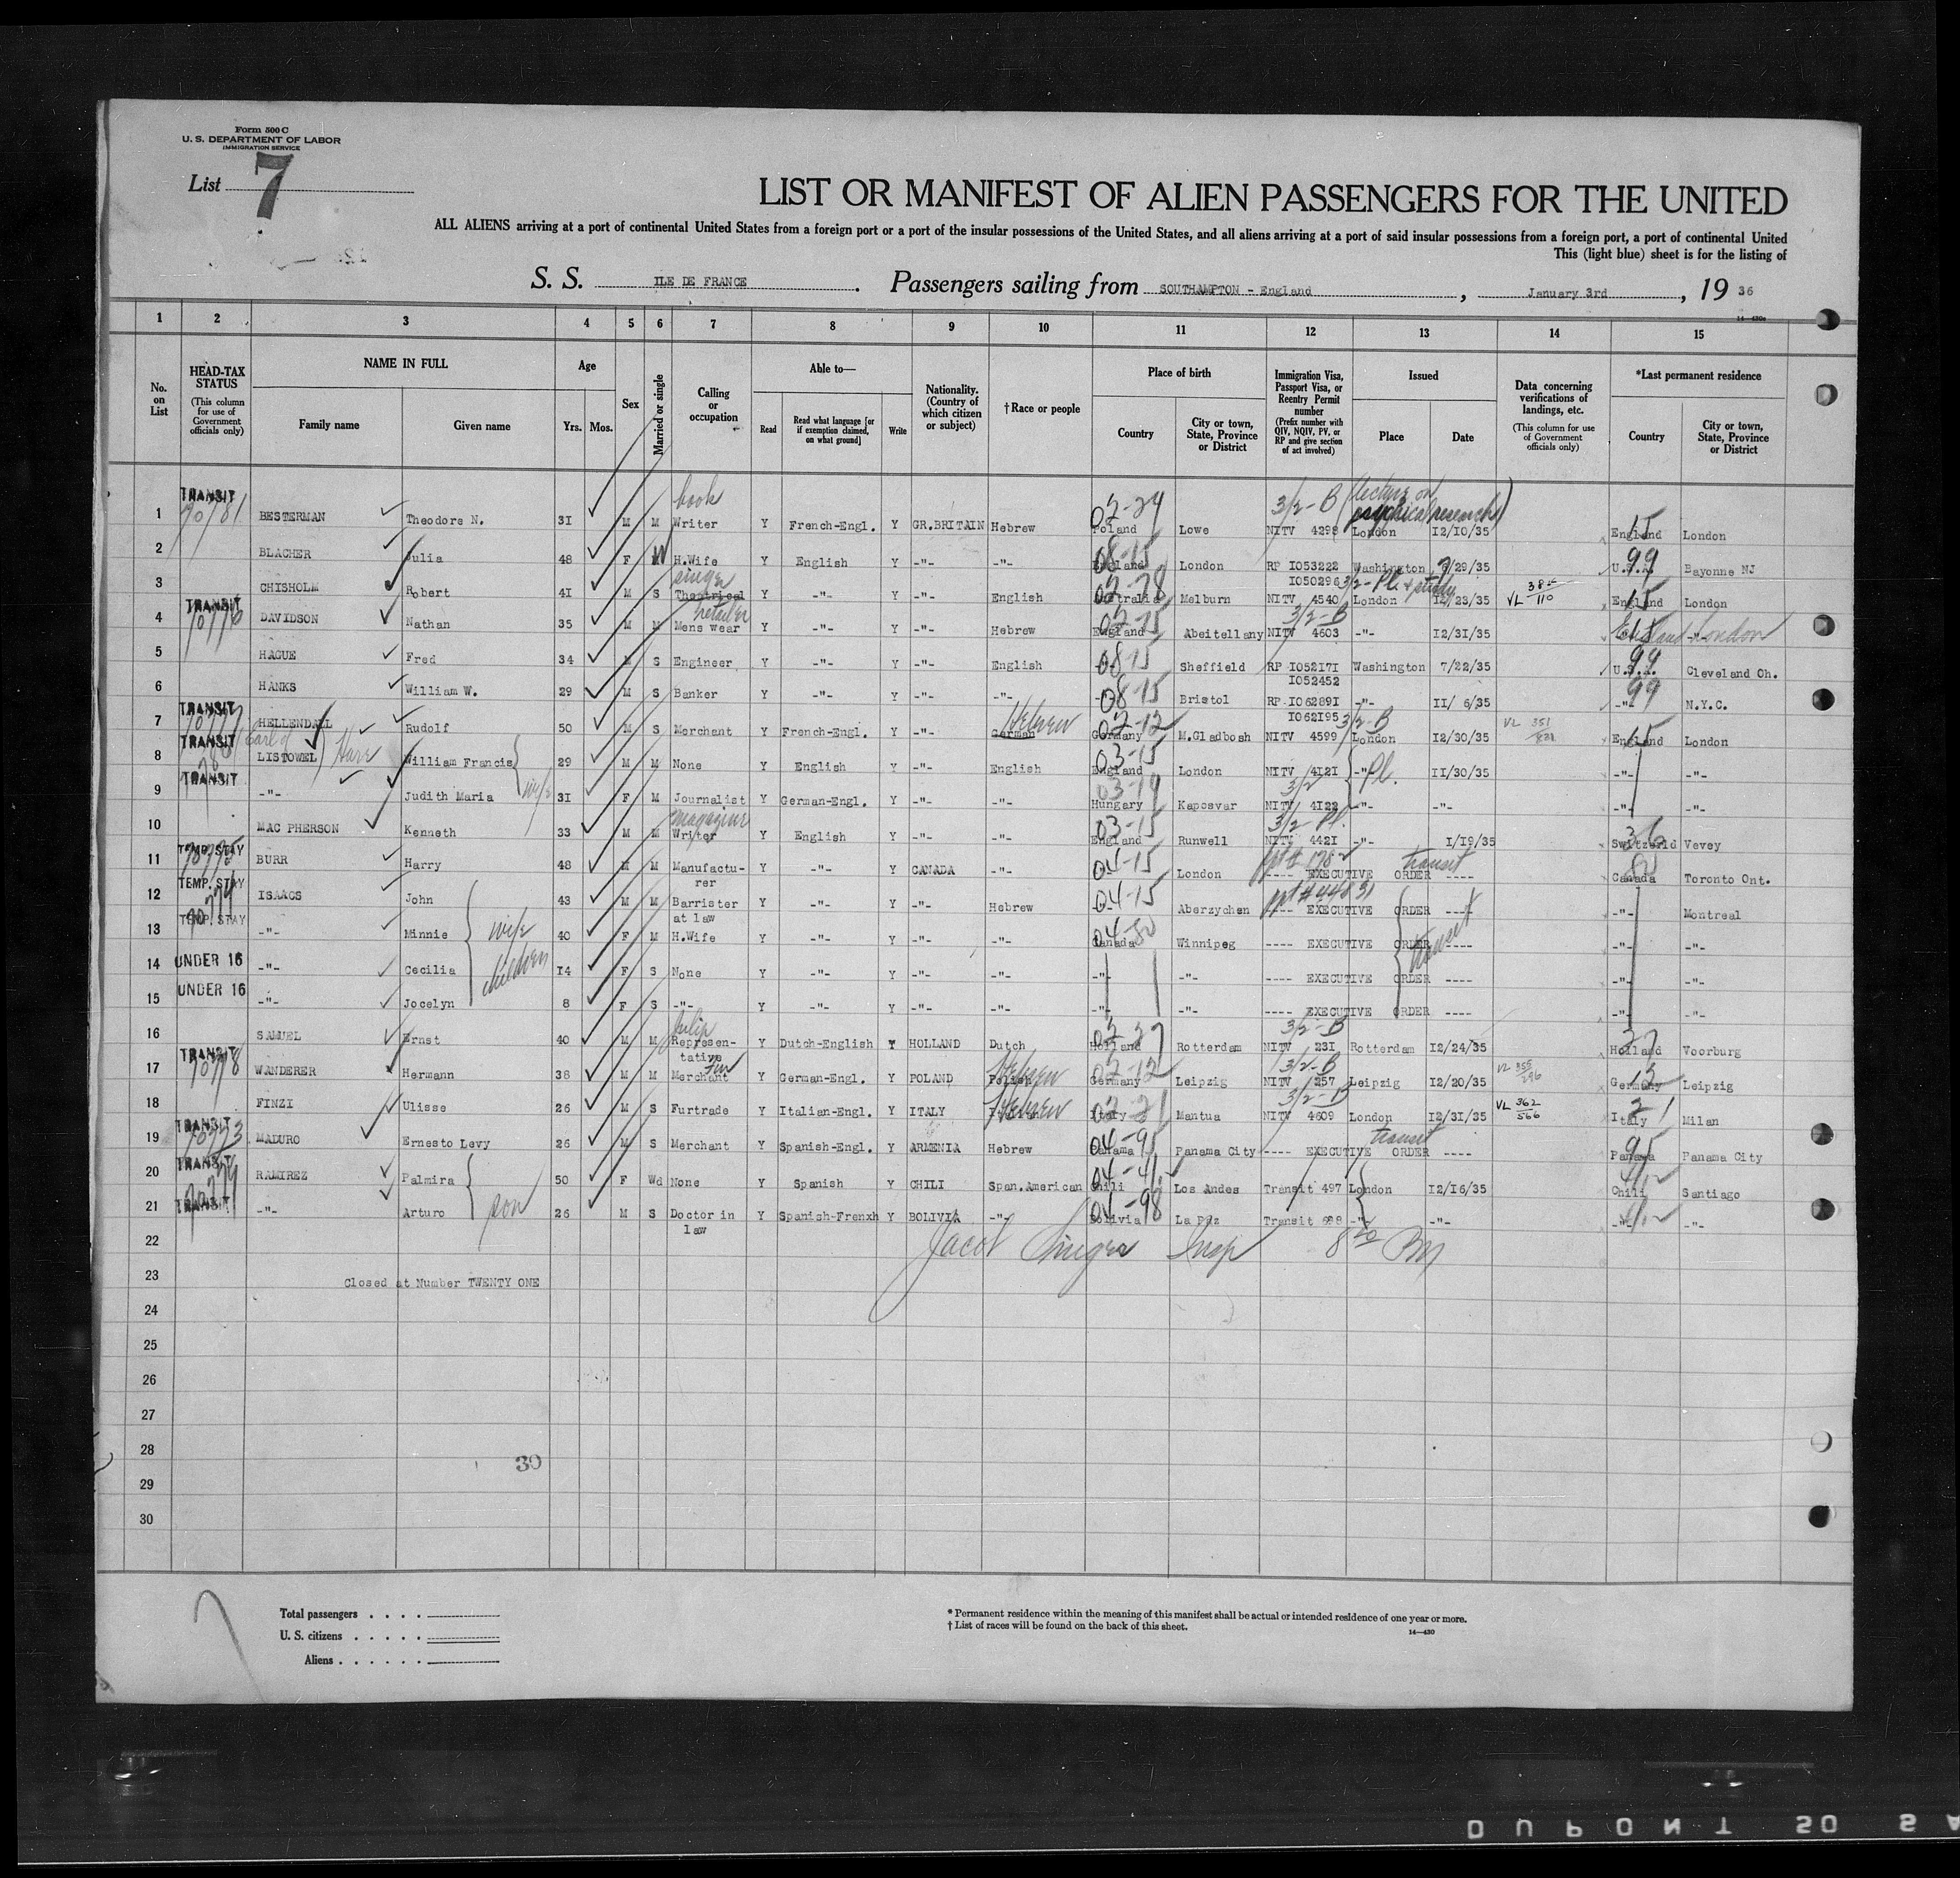 Form 500 C
U. S. DEPARTMENT OF LABOR
IMMIGRATION SERVICE
List 7
LIST OR MANIFEST OF ALIEN PASSENGERS FOR THE UNITED
ALL ALIENS arriving at a port of continental United States from a foreign port or a port of the insular possessions of the United States, and all aliens arriving at a port of said insular possessions from a foreign port, a port of continental United
This (light blue) sheet is for the listing of
S. S. ILE DE FRANCE. Passengers sailing from SOUTHAMPTON - England, January 3rd, 19 36
14—430c
1 2 3 4 5 6 7 8 9 10 11 12 13 14 15
No. on List
HEAD-TAX STATUS (This column for use of Government officials only)
NAME IN FULL
Family name Given name
Age
Yrs. Mos.
Sex
Married or single
Calling or occupation
Able to—
Read Read what language [or if exemption claimed, on what ground] Write
Nationality. (Country of which citizen or subject)
†Race or people
Place of birth
Country City or town, State, Province or District
Immigration Visa, Passport Visa, or Reentry Permit number (Prefix number with QIV, NQIV, PV, or RP and give section of act involved)
Issued
Place Date
Data concerning verifications of landings, etc. (This column for use of Government officials only)
*Last permanent residence
Country City or town, State, Province or District
book 02-29 3/2-B (lecture on psychical research)
1 TRANSIT 70781 BESTERMAN Theodore N. 31 M M Writer Y French-Engl. Y GR.BRITAIN Hebrew Poland Lowe NITV 4298 London 12/10/35 England 15 London
2 BLACHER Julia 48 F W H.Wife Y English Y -"- -"- England 08-15 London RP 1053222 Washington 7/29/35 U.S.A. 99 Bayonne NJ
singer 02-78 1050296 3/2-Pl. + study
3 CHISHOLM Robert 41 M S Theatrical Y -"- Y -"- English Australia Melburn NITV 4540 London 12/23/35 VL 110 England 15 London
retailer 3/2-B
4 TRANSIT DAVIDSON Nathan 35 M M Mens wear Y -"- Y -"- Hebrew England 02-15 Abeitellany NITV 4603 -"- 12/31/35 England London
5 HAGUE Fred 34 M S Engineer Y -"- Y -"- English -"- 08-15 Sheffield RP 1052171 Washington 7/22/35 U.S.A. 99 Cleveland Oh.
1052452
6 HANKS William W. 29 M S Banker Y -"- Y -"- -"- 08-15 Bristol RP 1062891 -"- 11/ 6/35 -"- 99 N.Y.C.
Hebrew 1062195 3/2-B
7 TRANSIT HELLENDALL Rudolf 50 M S Merchant Y French-Engl. Y -"- German Germany 02-12 M.Gladbosh NITV 4599 London 12/30/35 VL 351 England 15 London
Earl of Hare
8 TRANSIT LISTOWEL William Francis 29 M M None Y English Y -"- English England 03-15 London NITV 4121 -"- Pl. 11/30/35 -"- -"-
wife 3/2
9 TRANSIT -"- Judith Maria 31 F M Journalist Y German-Engl. Y -"- -"- Hungary 03-19 Kaposvar NITV 4122 -"- -"- -"- -"-
magazine 3/2-Pl.
10 MAC PHERSON Kenneth 33 M M Writer Y English Y -"- -"- England 03-15 Runwell NITV 4421 -"- 1/19/35 Switzerld 36 Vevey
11 TEMP. STAY BURR Harry 48 M M Manufacturer Y -"- Y CANADA -"- -"- 04-15 London ---- EXECUTIVE ORDER ---- transit Canada Toronto Ont.
12 TEMP. STAY ISAACS John 43 M M Barrister at law Y -"- Y -"- Hebrew -"- 04-15 Aberzychen ---- EXECUTIVE ORDER ---- -"- Montreal
13 TEMP. STAY -"- Minnie wife 40 F M H.Wife Y -"- Y -"- -"- Canada 04-80 Winnipeg ---- EXECUTIVE ORDER ---- transit -"- -"-
children
14 UNDER 16 -"- Cecilia 14 F S None Y -"- Y -"- -"- -"- -"- ---- EXECUTIVE ORDER ---- -"- -"-
15 UNDER 16 -"- Jocelyn 8 F S -"- Y -"- Y -"- -"- -"- -"- ---- EXECUTIVE ORDER ---- -"- -"-
tulip 3/2-B
16 SAMUEL Ernst 40 M M Representative Y Dutch-English Y HOLLAND Dutch Holland 02-37 Rotterdam NITV 231 Rotterdam 12/24/35 Holland 37 Voorburg
fur Hebrew 3/2-B
17 TRANSIT 70778 WANDERER Hermann 38 M M Merchant Y German-Engl. Y POLAND Polish Germany 02-12 Leipzig NITV 257 Leipzig 12/20/35 VL Germany 12 Leipzig
Hebrew 3/2-B
18 FINZI Ulisse 26 M S Furtrade Y Italian-Engl. Y ITALY Italy 02-21 Mantua NITV 4609 London 12/31/35 VL 362/566 Italy 21 Milan
19 TRANSIT 70773 MADURO Ernesto Levy 26 M S Merchant Y Spanish-Engl. Y ARMENIA Hebrew Panama 04-95 Panama City ---- EXECUTIVE ORDER ---- transit Panama 95 Panama City
20 TRANSIT RAMIREZ Palmira 50 F Wd None Y Spanish Y CHILI Span.American Chili 04-41 Los Andes Transit 497 London 12/16/35 Chili Santiago
21 TRANSIT -"- Arturo son 26 M S Doctor in law Y Spanish-Frenxh Y BOLIVIA -"- Bolivia 04-98 La Paz Transit 688 -"- -"- -"- -"-
22 Jacob Insp 8 20 PM
23 Closed at Number TWENTY ONE
24
25
26
27
28
29 30
30
Total passengers . . . .
U. S. citizens . . . . .
Aliens . . . . . .
* Permanent residence within the meaning of this manifest shall be actual or intended residence of one year or more.
† List of races will be found on the back of this sheet.
14—430
DUPONT SO SA